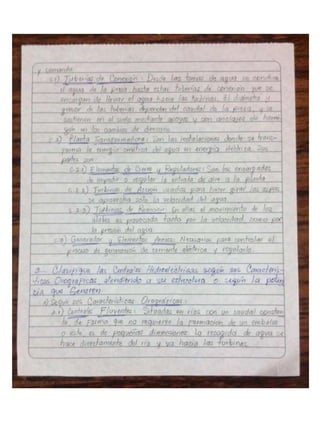 y comando.
c.1) Tuberías de Conexión: Desde las tomas de agua se conduce
el agua de la presa hasta estas tuberías de conexión que se
encargan de llevar el agua hacia las turbinas. El diámetro y
grosor de las tuberías dependen del caudal de la presa, y se
sostienen en el suelo mediante apoyos y con anclajes de hormi-
gón en los cambios de dirección.
Planta Transformadora: Son las instalaciones donde se trans-
forma la energía cinética del agua en energía eléctrica. Sus
partes son:
Elementos de Cierre y Reguladores: Son los encargados
de impedir o regular la entrada de a la planta.
c.2.2) Turbinas de Acción: usadas para hacer girar los
se aprovecha solo la velocidad del agua.
c.2.3) Turbinas de Reacción: En ellas el movimiento de los
álabes es provocado tanto por la velocidad, como por
la presión del agua.
Generador y Elementos Anexos: Necesarios para controlar el
proceso de generación de corriente eléctrica y regularla.
2.- Clasifique las Centrales Hidroeléctricas según sus Caracterís-
ticas Orográficas, atendiendo a su estructura o según la poten-
cia que Generen
a) Según sus Características Orográficas:
a.1) Centrales Fluyentes: Situadas en ríos con un caudal constan-
te, de forma que no requieren la formación de un embalse
o este es de pequeñas dimensiones. la recogida de agua se
hace directamente del río y va hacia las turbinas.